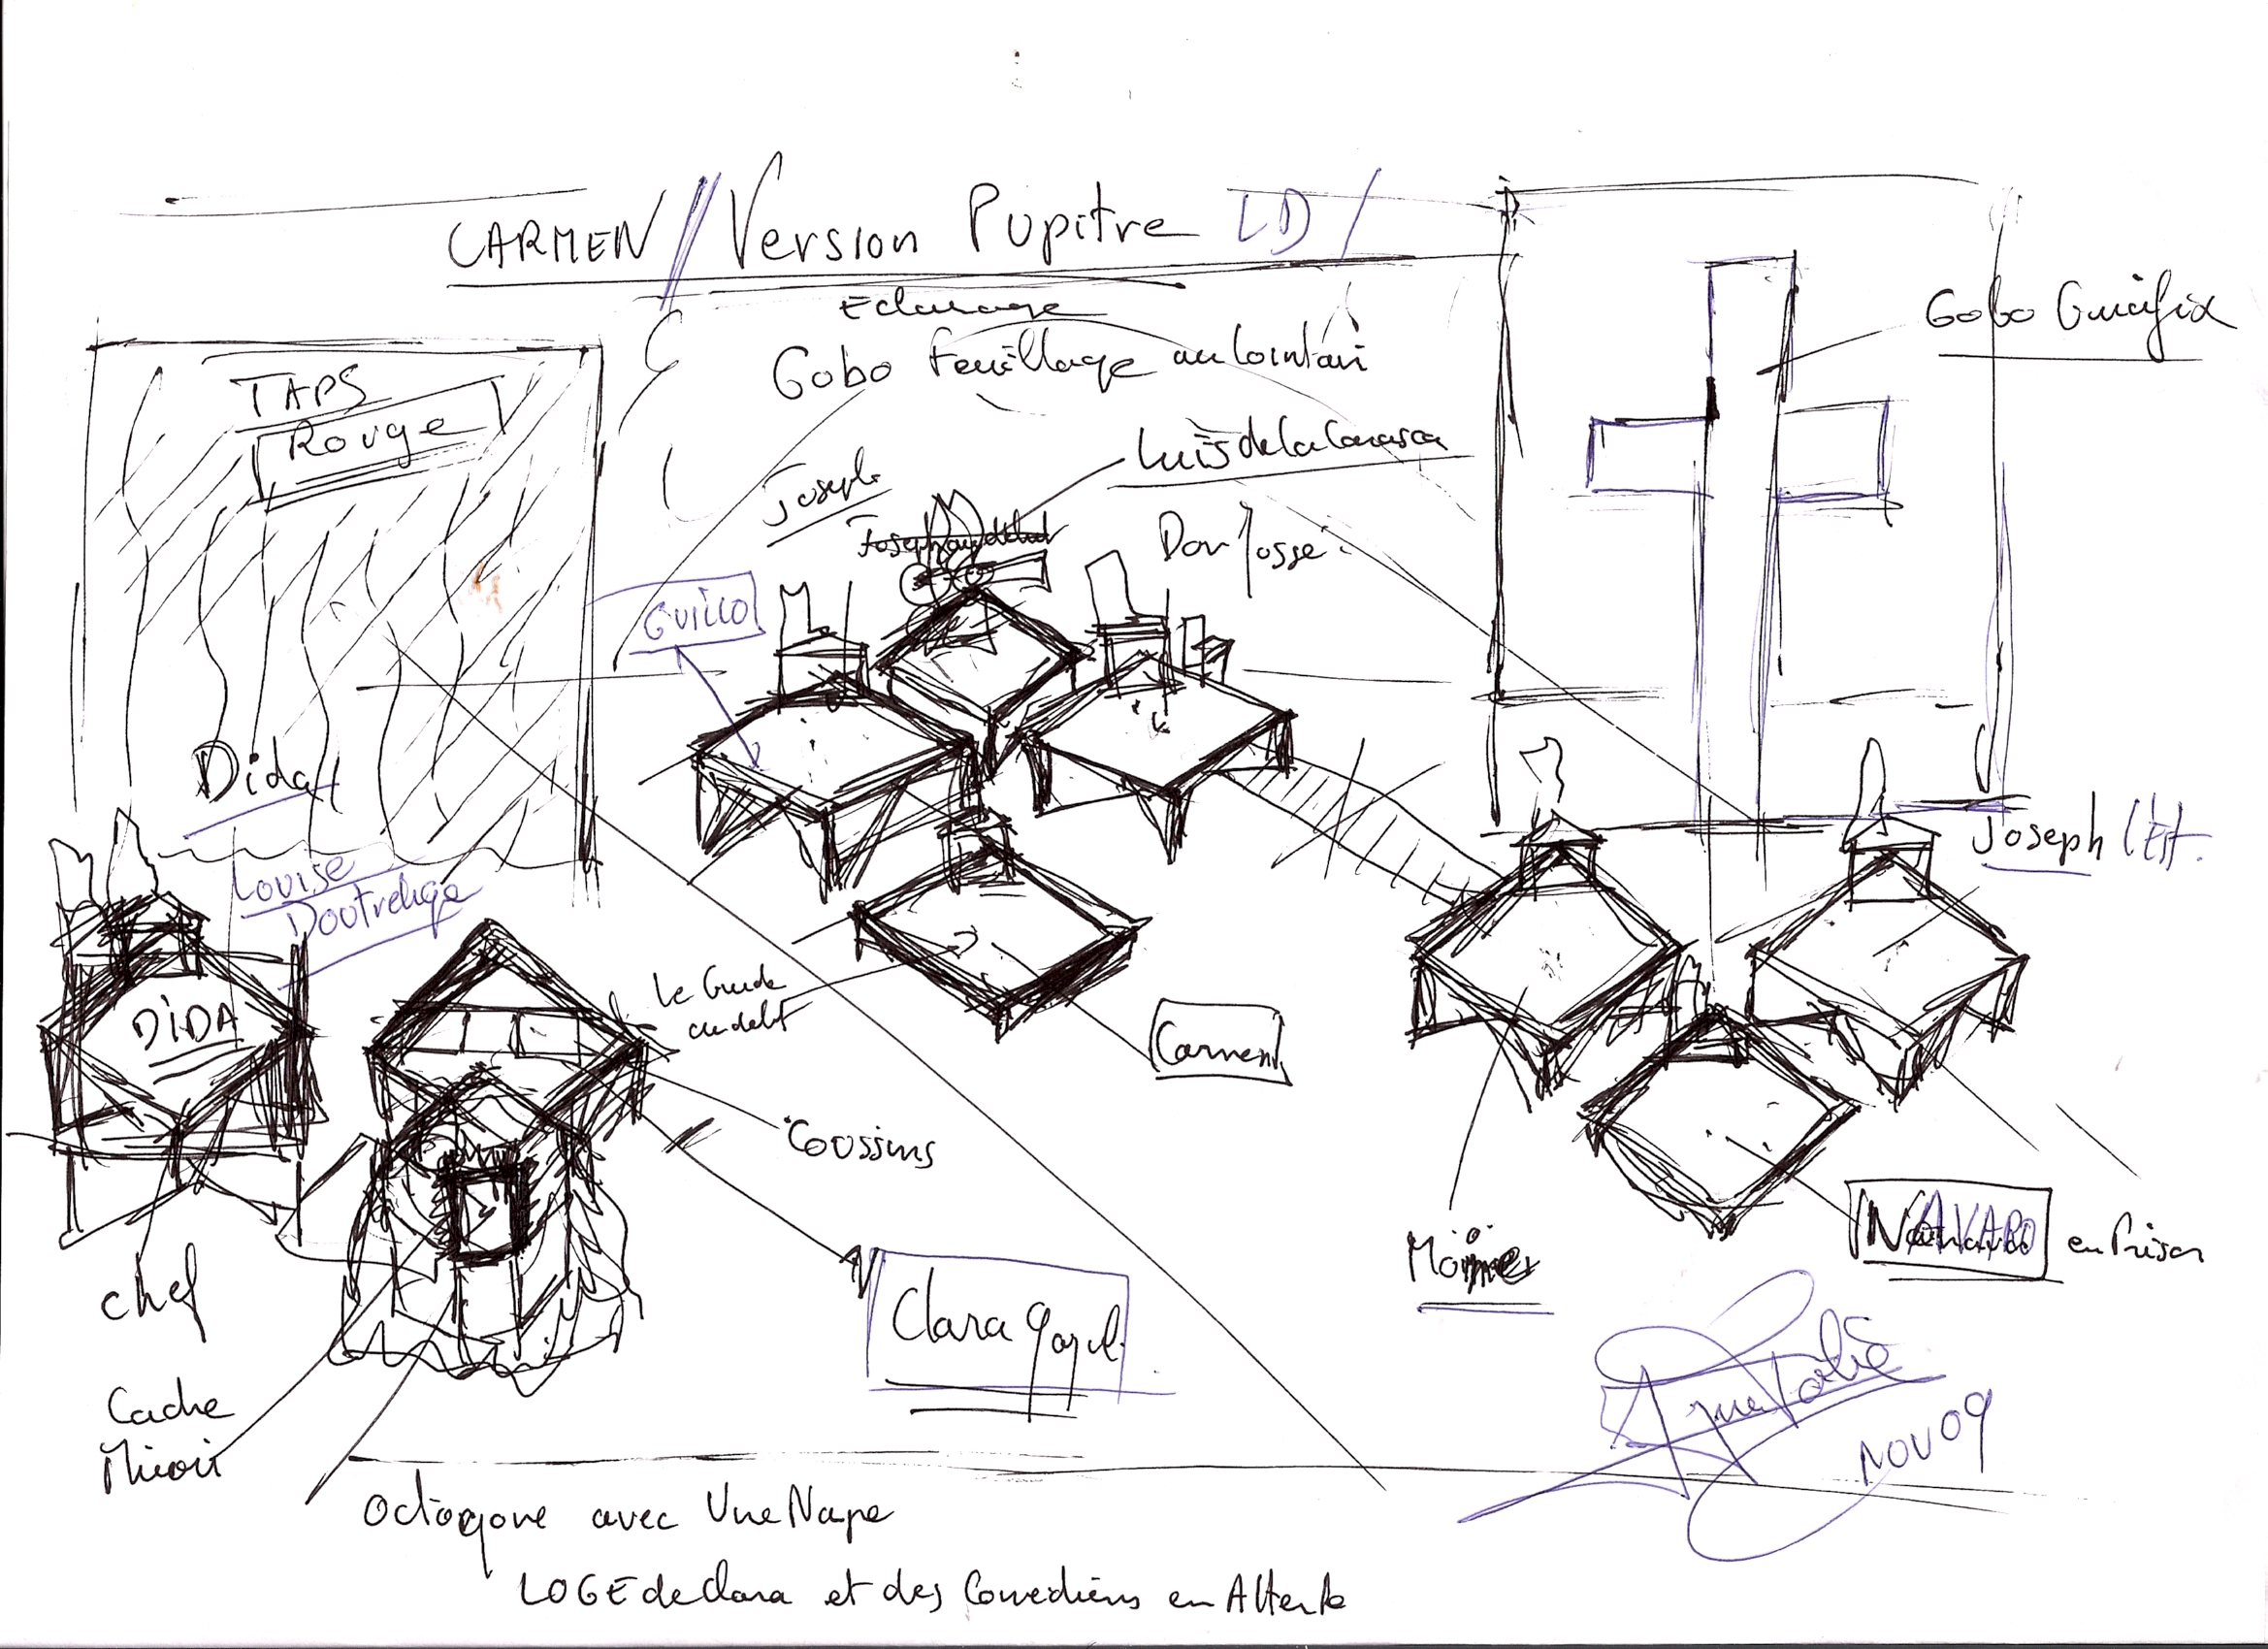 CARMEN / Version Pupitre LD /
Eclairage
Gobo Feuillage au lointain
Gobo Crucifix
TAPS
Rouge
Luis de la
Joseph
Joseph au début
Don Josse
GUILLO
Dida
Louise
Doutreligne
Joseph l'Est.
DIDA
Le Guide
au debt
Carmen
Coussins
Moine
NAVARO en Prison
chef
Clara Gazul
Cadre
Miroir
NOV 09
Octogone avec Une Nape
LOGE de Clara et des Comédiens en Attente